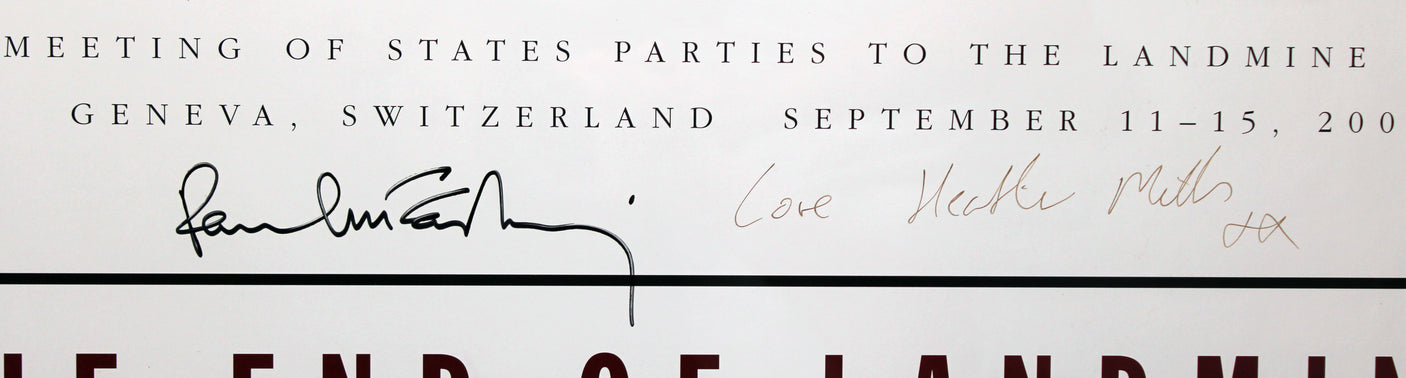 MEETING OF STATES PARTIES TO THE LANDMINE
GENEVA, SWITZERLAND SEPTEMBER 11–15, 200
Paul McCartney Love Heather Mills xx
END OF LANDMIN